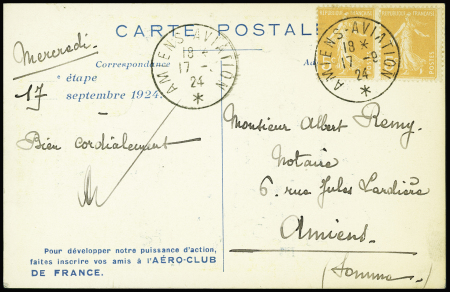 CARTE POSTALE
RÉPUBLIQUE FRANÇAISE
POSTES
AMIENS-AVIATION
18 *
17 -9
24
*
AMIENS-AVIATION
18 *
17 -9
24
*
Correspondance
Mercredi
étape
17
septembre 1924
Bien cordialement
Monsieur Albert Remy
Notaire
6, rue Jules Lardière
Amiens
(Somme)
Pour développer notre puissance d'action,
faites inscrire vos amis à l'AÉRO-CLUB
DE FRANCE.